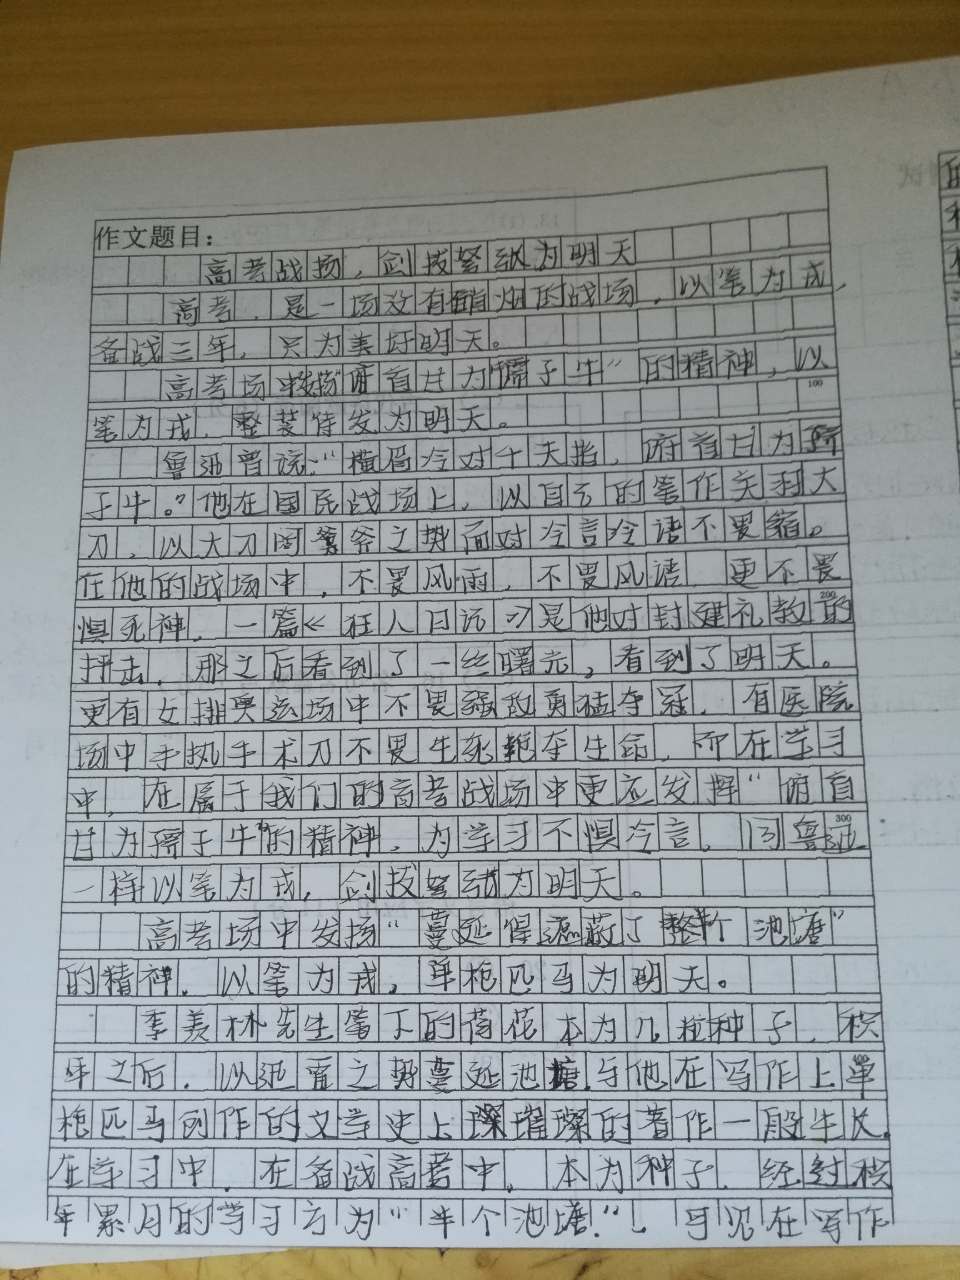 作文题目：
高考战场，剑拔弩张为明天
高考，是一场没有硝烟的战场，以笔为戎，
备战三年，只为美好明天。
高考场中发扬"俯首甘为孺子牛"的精神，以
笔为戎，整装待发为明天。
鲁迅曾说："横眉冷对千夫指，俯首甘为孺
子牛。"他在国民战场上，以自己的笔作关羽大
刀，以大刀阔斧之势面对冷言冷语不畏缩。
在他的战场中，不畏风雨，不畏风语，更不畏
惧死神，一篇《狂人日记》是他对封建礼教的
抨击，那之后看到了一丝曙光，看到了明天。
更有女排奥运场中不畏强敌勇猛夺冠，有医院
场中手执手术刀不畏生死抢夺生命，而在学习
中，在属于我们的高考战场中更应发挥"俯首
甘为孺子牛"的精神，为学习不惧冷言，同鲁迅
一样以笔为戎，剑拔弩张为明天。
高考场中发扬"蔓延得遮蔽了整个池塘"
的精神，以笔为戎，单枪匹马为明天。
季羡林先生笔下的荷花本为几粒种子，积
年之后，以迅雷之势蔓延池塘，与他在写作上单
枪匹马创作的文学史上璀璨的著作一般生长。
在学习中，在备战高考中，本为种子，经过积
年累月的学习方为"半个池塘"，可见在写作
100
200
300
400